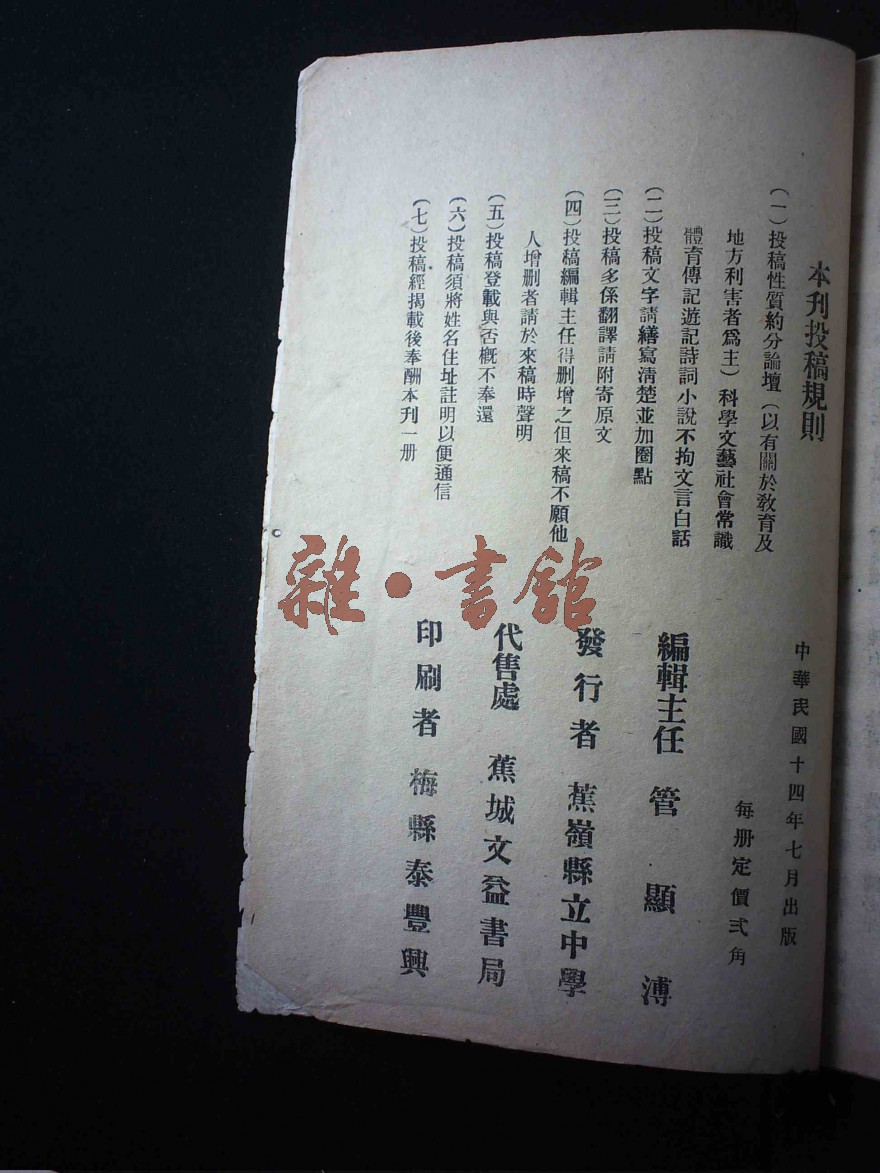 本刊投稿規則
(一)投稿性質約分論壇(以有關於教育及
地方利害者爲主)科學文藝社會常識
體育傳記遊記詩詞小說不拘文言白話
(二)投稿文字請繕寫淸楚並加圈點
(三)投稿多係翻譯請附寄原文
(四)投稿編輯主任得删增之但來稿不願他
人增删者請於來稿時聲明
(五)投稿登載與否槪不奉還
(六)投稿須將姓名住址註明以便通信
(七)投稿經揭載後奉酬本刊一册
中華民國十四年七月出版
每册定價弍角
編輯主任 管顯溥
發行者 蕉嶺縣立中學
代售處 蕉城文益書局
印刷者 梅縣泰豐興
雜•書館